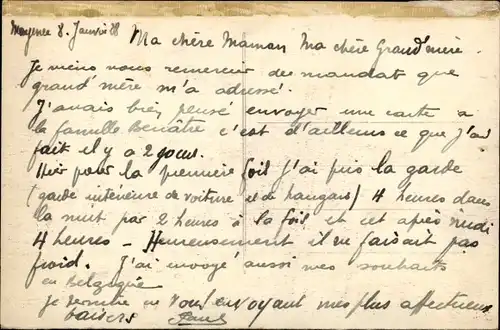 Mayence 8. Janvier 28
Ma chère Maman Ma chère Grand'mère.
Je viens vous remercier du mandat que
grand'mère m'a adressé.
J'avais bien pensé envoyer une carte a
la famille c'est d'ailleurs ce que j'ai
fait il y a 2 jours.
Hier pour la première fois j'ai pris la garde
(garde intérieure de voiture et de hangars) 4 heures dans
la nuit par 2 heures à la fois et cet après midi
4 heures - Heureusement il ne faisait pas
froid. J'ai envoyé aussi mes souhaits
en Belgique
Je termine en vous envoyant mes plus affectueux
baisers